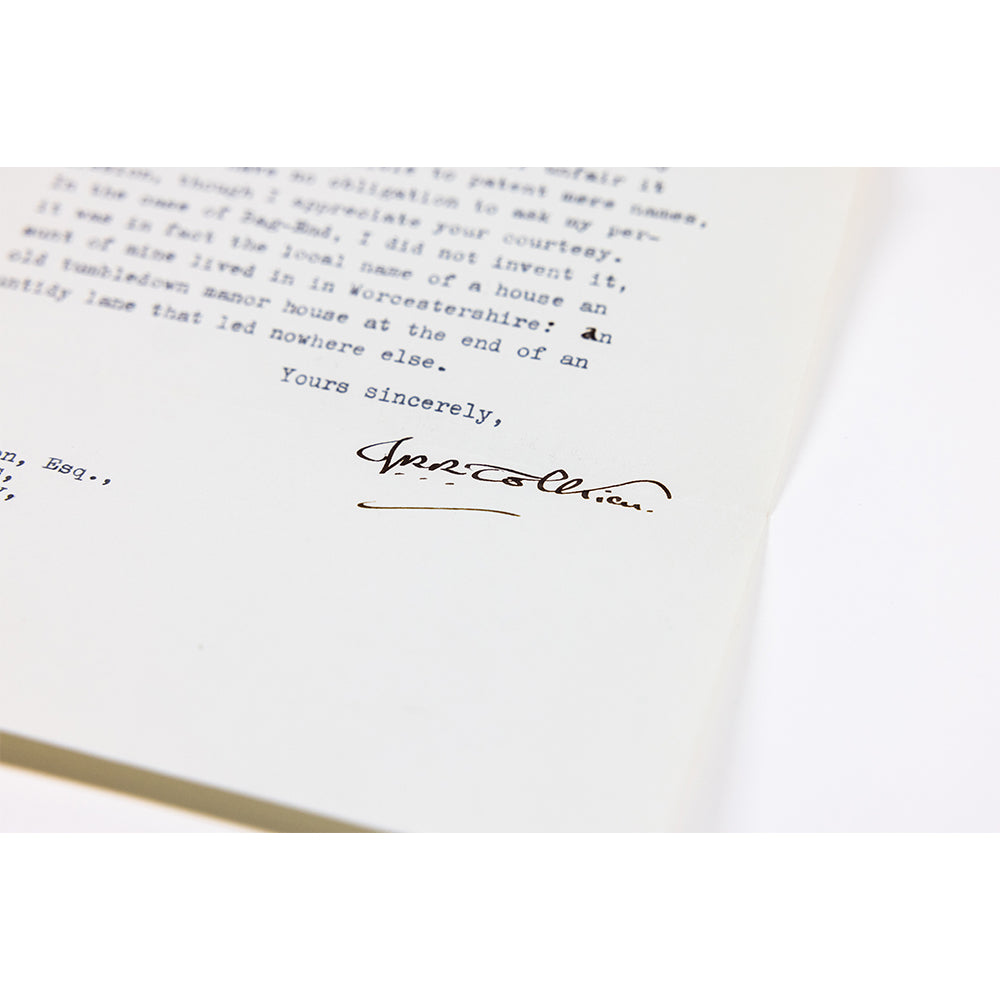 unfair it
to patent mere names,
have no obligation to ask my per-
though I appreciate your courtesy.
In the case of Bag-End, I did not invent it,
it was in fact the local name of a house an
aunt of mine lived in in Worcestershire: an
old tumbledown manor house at the end of an
untidy lane that led nowhere else.
Yours sincerely,
JRRTolkien.
on, Esq.,